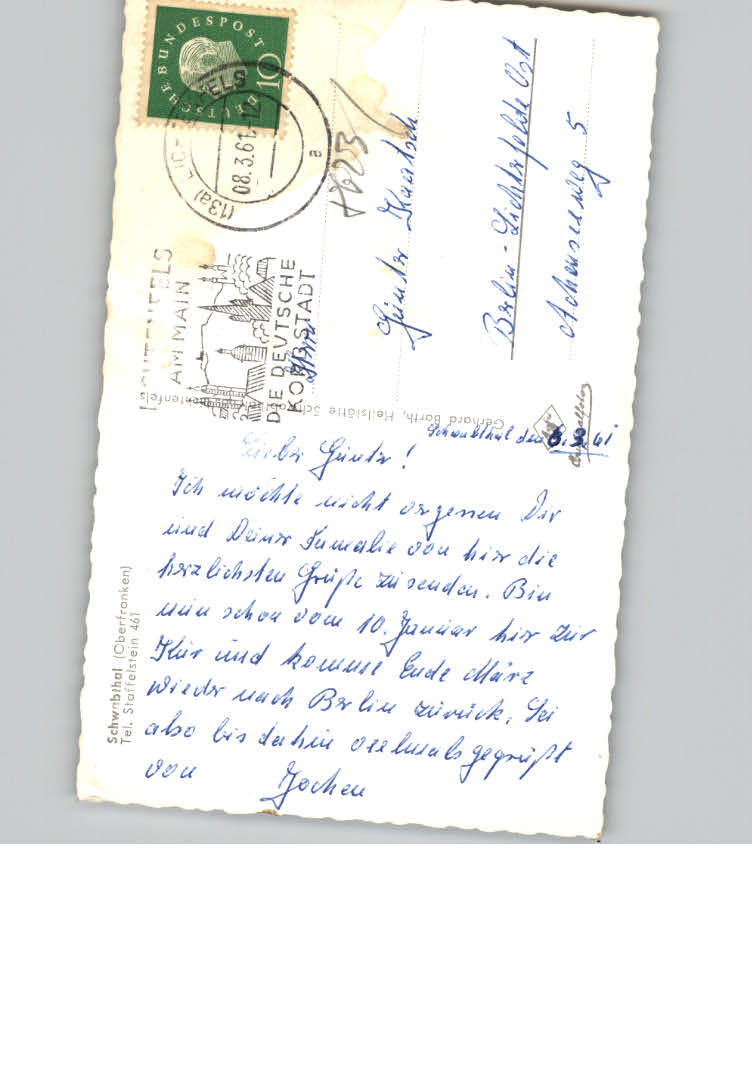 DEUTSCHE BUNDESPOST
10
(13a) LICHTENFELS
08.3.61-12
a
LICHTENFELS
AM MAIN
DIE DEUTSCHE
KORBSTADT
Herrn
Günter Kaatsch
Berlin-Lichterfelde Ost
Achenseeweg 5
Gerhard Barth, Heilstätte
Lichtenfels
Schwabthal den 8.3.61
Lieber Günter!
Ich möchte nicht vergessen Dir
und Deiner Famalie von hier die
herzlichsten Grüße zu senden. Bin
nun schon vom 10. Januar hier zur
Kur und komme Ende März
wieder nach Berlin zurück. Sei
also bis dahin vielmals gegrüßt
von Jochen
Schwabthal (Oberfranken)
Tel. Staffelstein 461